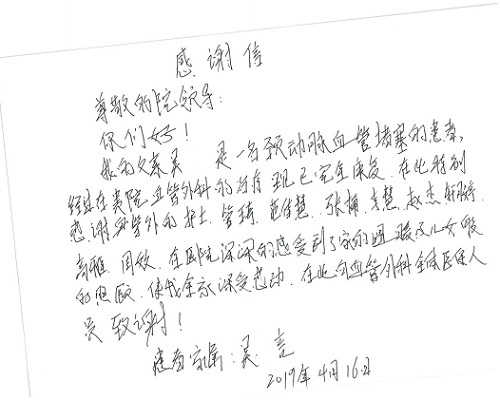 感谢信
尊敬的院领导：
你们好！
我的父亲吴 是一名颈动脉血管堵塞的患者，
经过在贵院血管外科的治疗现已完全康复。在此特别
感谢血管外的护士、管琦、范佳慧、张楠、袁慧、赵杰、
高雅、周欣。在医院深深的感受到了家的温暖及儿女般
的照顾，使我全家深受感动，在此向血管外科全体医护人
员致谢！
患者家属：吴
2019年4月16日